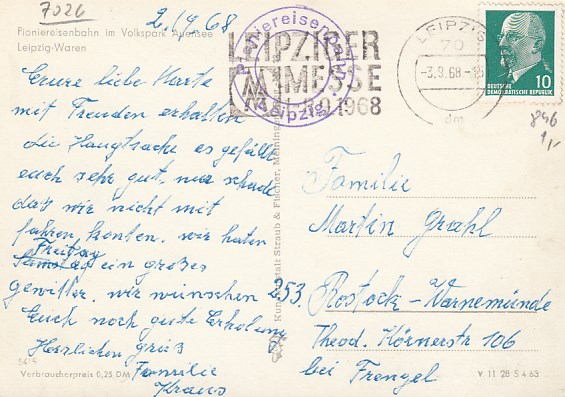 7026
2./9 68
Pioniereisenbahn im Volkspark Auensee
Leipzig-Waren
Eure liebe Karte
mit Freuden erhalten
die Hauptsache es gefällt
euch sehr gut, nur schade
das wir nicht mit
fahren konten. wir haten
Freitag
Samstag ein großes
gewitter, wir wünschen
Euch noch gute Erholung
Herzlichen grüß
Familie
Kraus
5415
Verbraucherpreis 0,25 DM
Pioniereisenbahn
Leipzig
LEIPZIGER
MESSE
1968
LEIPZIG
70
-3.9.68
dm
10
DEUTSCHE
DEMOKRATISCHE REPUBLIK
846
1,-
Kunstanstalt Straub & Fischer, Meiningen
Familie
Martin Grahl
253. Rostock-Warnemünde
Theod. Körnerstr 106
bei Frengel
V 11 28 S 4 63